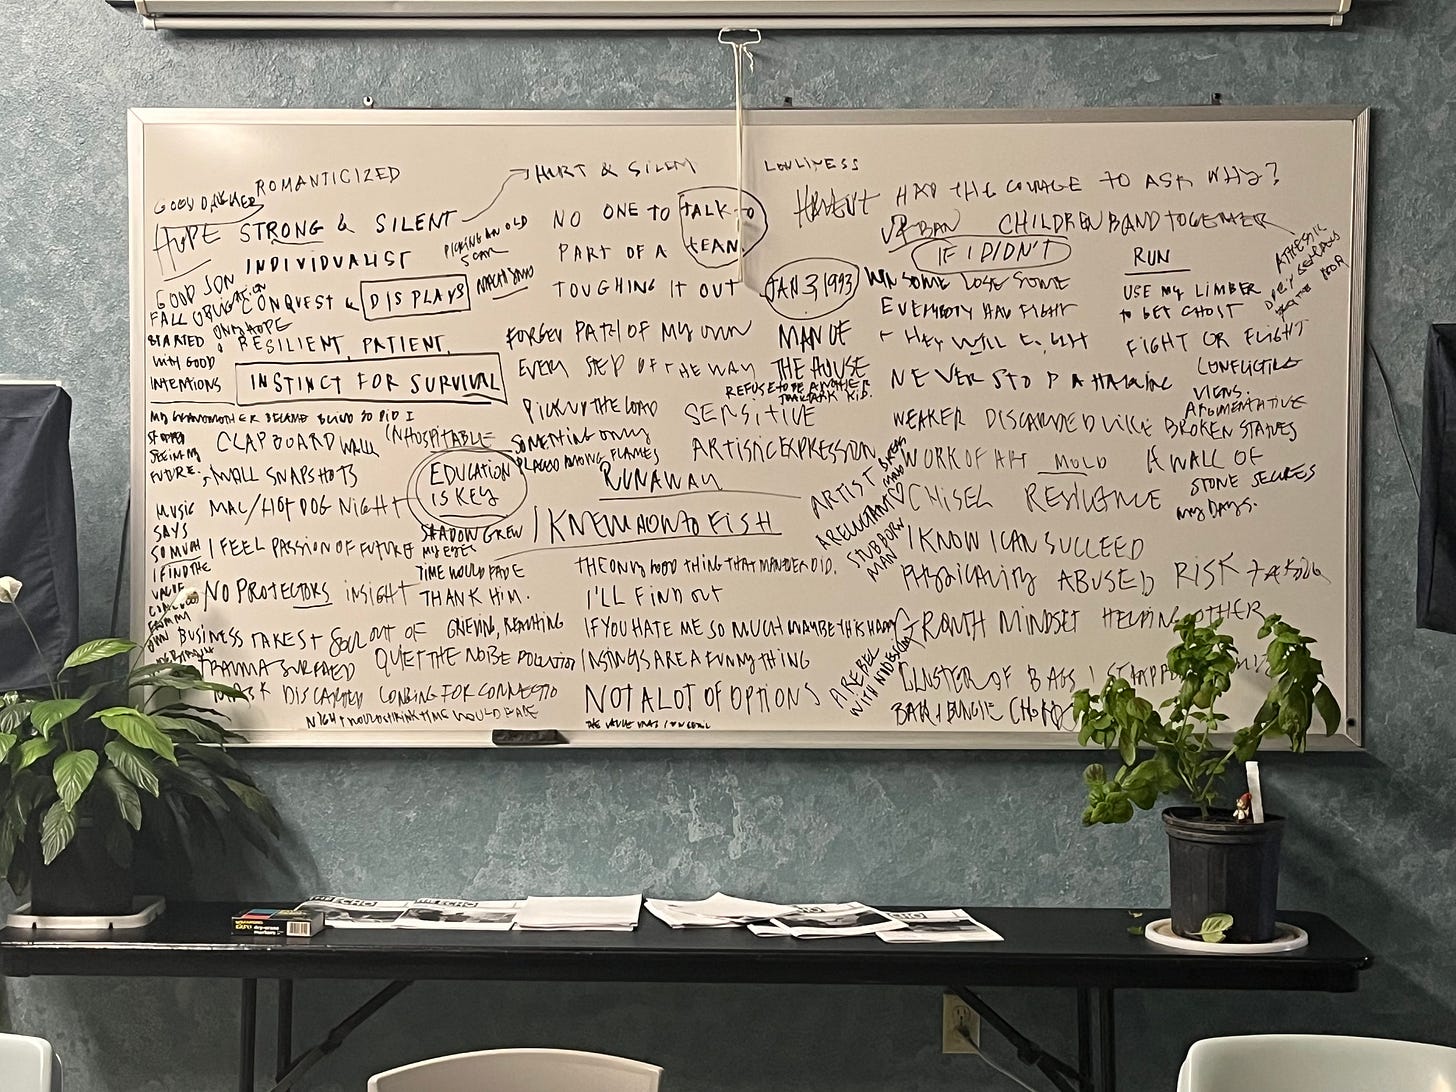 ROMANTICIZED
HURT & SILENT
LONLINESS
HAVENT HAD THE COURAGE TO ASK WHY?
HYPE STRONG & SILENT
PICKING AN OLD SCAR
NO ONE TO TALK TO
URBAN CHILDREN BAND TOGETHER
INDIVIDUALIST
PART OF A TEAM.
IF I DIDN'T
RUN
GOOD SON
FALL OBLIGATION
CONQUEST & DISPLAYS
TOUGHING IT OUT
JAN 3, 1993
WIN SOME LOSE SOME
USE MY LIMBER
TO GET GHOST
EVERYBODY HAD FIGHT
STARTED
WITH GOOD
INTENTIONS
ONLY HOPE
RESILIENT, PATIENT,
FORGED PATH OF MY OWN
MAN OF
THE HOUSE
FIGHT OR FLIGHT
INSTINCT FOR SURVIVAL
EVERY STEP OF THE WAY
REFUSE TO BE ANOTHER
KID.
NEVER STOP
CONFLICTING
VIEWS.
ARGUMENTATIVE
MY GRANDMOTHER BECAME BLIND SO DID I
STOPPED
SEEING MY
FUTURE.
CLAPBOARD WALL
INHOSPITABLE
PICK UP THE LOAD
SENSITIVE
WEAKER DISCARDED LIKE BROKEN STATUES
SMALL SNAPSHOTS
EDUCATION
IS KEY
SOMETHING ONLY
PLACED AMONG FLAMES
ARTISTIC EXPRESSION
WORK OF ART MOLD
A WALL OF
STONE SECURES
MY DAYS.
MUSIC
SAYS
SO MUCH
I FIND THE
VALUE
MAC/HOT DOG NIGHT
RUNAWAY
ARTIST
CHISEL RESISTANCE
SHADOW GREW
MY EYES
I KNEW HOW TO FISH
A RELUCTANT
STUBBORN
MAN
I FEEL PASSION OF FUTURE
TIME WOULD FADE
THE ONLY GOOD THING THAT MAN EVER DID.
I KNOW I CAN SUCCEED
NO PROTECTORS INSIGHT
THANK HIM.
I'LL FIND OUT
PHYSICALITY ABUSED RISK TAKING
BUSINESS TAKES SOUL OUT OF
IF YOU HATE ME SO MUCH MAYBE THIS
GROWTH MINDSET HELPING OTHER
TRAUMA SURFACED QUIET THE NOISE POLLUTION
INSINGS ARE A FUNNY THING
A REBEL
CLUSTER OF BAGS I
MASK DISCARDED LONGING FOR CONNECTION
NOT A LOT OF OPTIONS
BAR & BUNGIE CHORDS
THE ECHO
THE ECHO